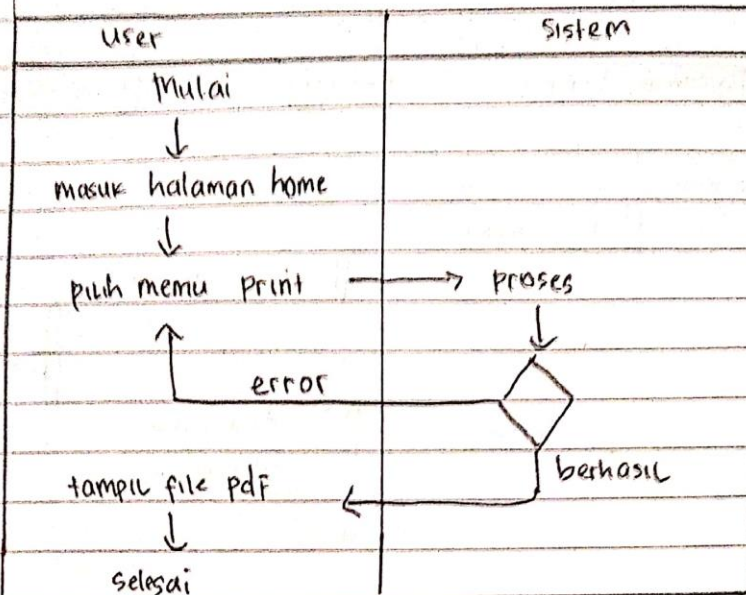 User
Sistem
Mulai
masuk halaman home
pilih memu print
proses
error
berhasil
tampil file pdf
selesai